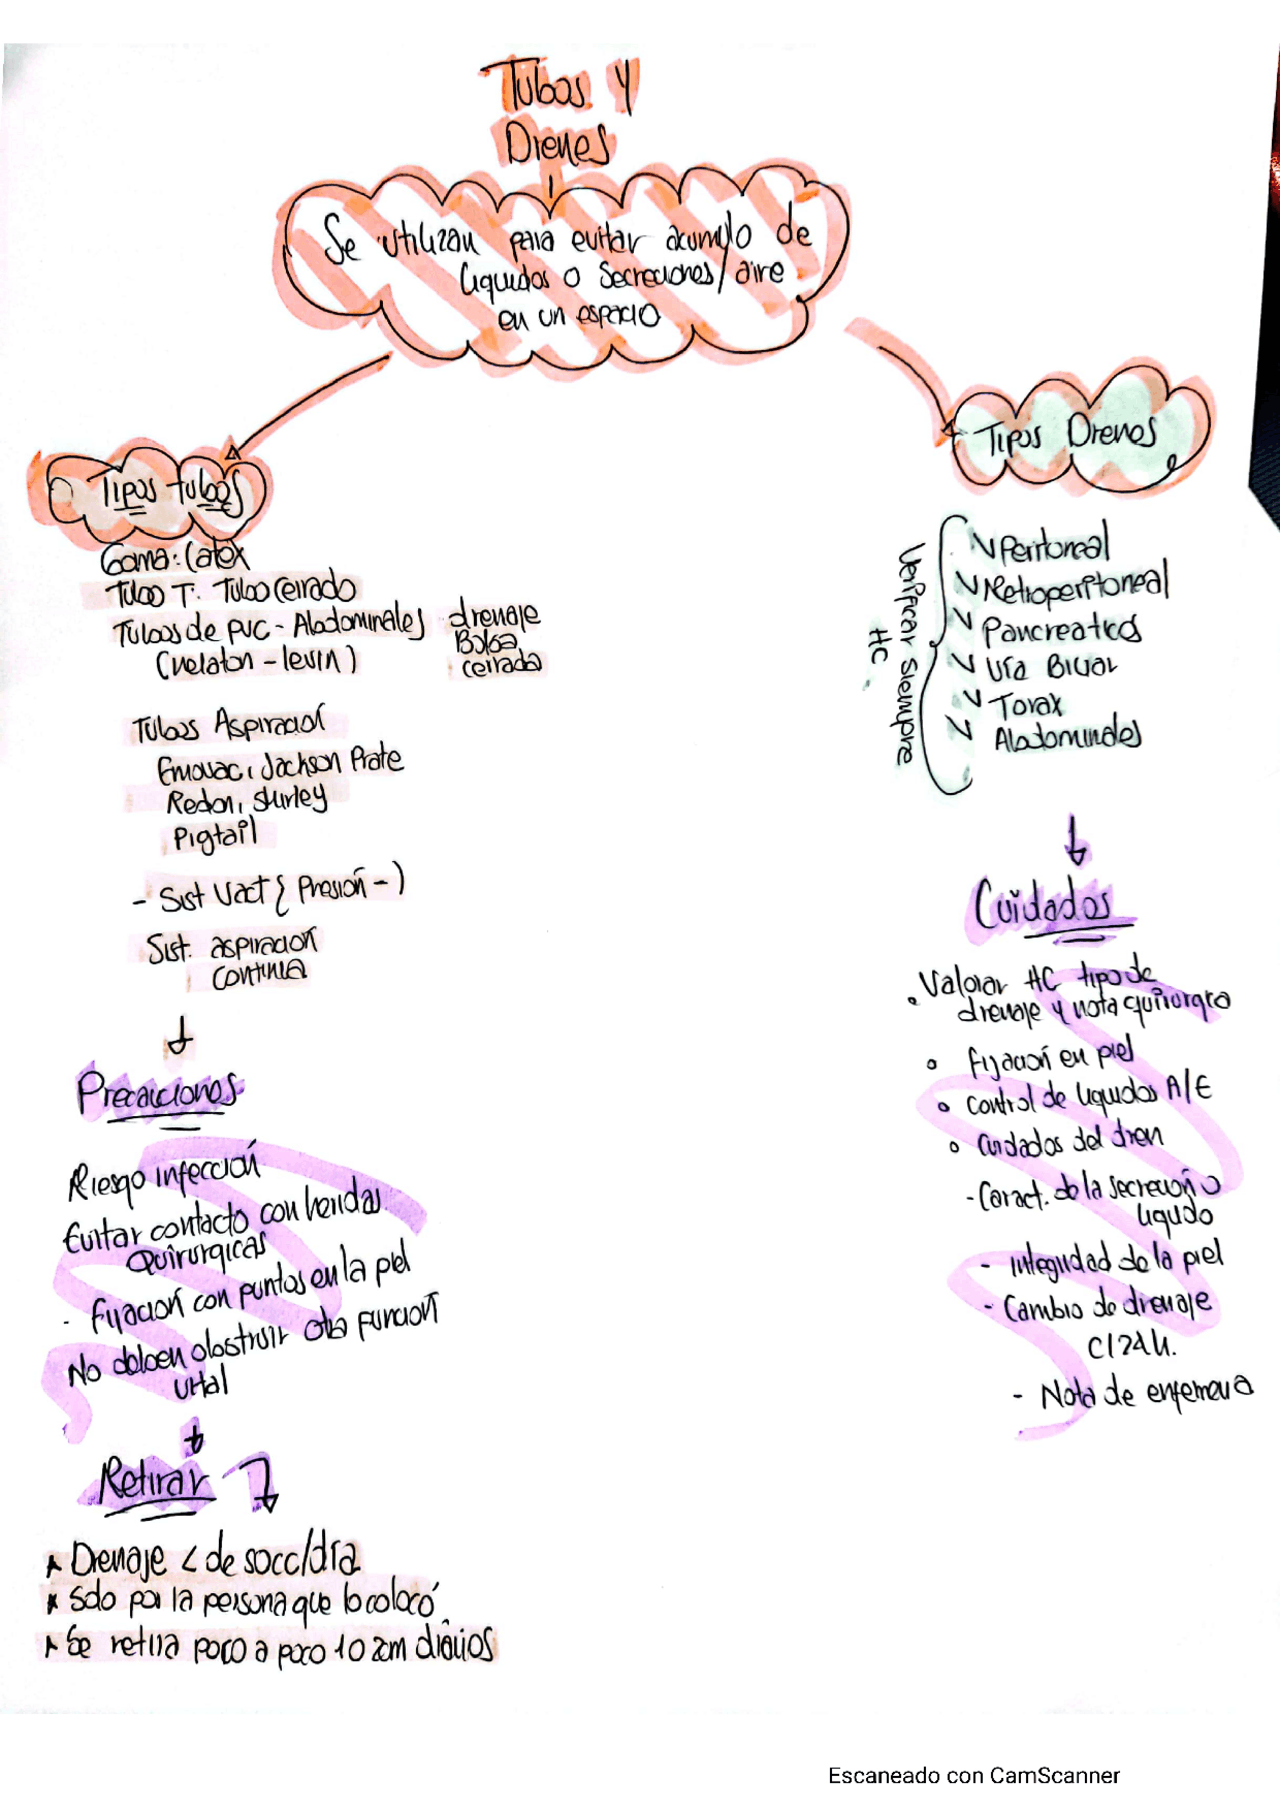 Tubos Y
Drenes
Se utilizan para evitar acumulo de
liquidos o Secreciones/aire
en un espacio
Tipos tubos
Goma: Latex
Tubo T. Tubo Cerrado
Tubos de PVC - Abdominales
(nelaton - levin)
drenaje
Bolsa
cerrada
Tubos Aspiración
Emovac, Jackson Prate
Redon, shirley
Pigtail
- Sist Vact { Presión - )
Sist. aspiración
continua
Precauciones
Riesgo infección
Evitar contacto con heridas
Quirurgicas
- fijación con puntos en la piel
No deben obstruir otra función
vital
Retirar
* Drenaje < de 50cc/día
* Solo por la persona que lo colocó
* Se retira poco a poco 1 o 2cm diarios
Tipos Drenes
Peritoneal
Retroperitoneal
Pancreatico
Vía Biliar
Torax
Abdominales
Verificar siempre
HC.
Cuidados
• Valorar HC tipo de
drenaje y nota quirurgica
• fijación en piel
• control de liquidos A/E
• Cuidados del dren
- Caract. de la secreción o
liquido
- integridad de la piel
- Cambio de drenaje
C/24h.
- Nota de enfermeria
Escaneado con CamScanner